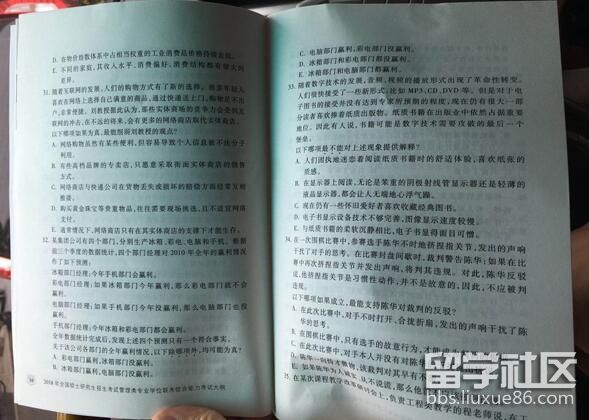 D. 在物价指数体系中占相当权重的工业消费品价格持续走低。
E. 不同的家庭,其收入水平、消费偏好、消费结构都有很大的
差异。
31. 随着互联网的发展,人们的购物方式有了新的选择。很多年轻人
喜欢在网络上选择自己满意的商品,通过快递送上门,购物足不出
户,非常便捷。刘教授据此认为,那些实体商场的竞争力会受到互
联网的冲击,在不远的将来,会有更多的网络商店取代实体商店。
以下哪项如果为真,最能削弱刘教授的观点?
A. 网络购物虽然有某些便利,但容易导致个人信息被不法分子
利用。
B. 有些高档品牌的专卖店,只愿意采取街面实体商店的销售
方式。
C. 网络商店与快递公司在货物丢失或损坏的赔偿方面经常互相
推诿。
D. 购买黄金珠宝等贵重物品,往往需要现场挑选,且不适宜网络支
付。
E. 通常情况下,网络商店只有在其实体商店的支撑下才能生存。
32. 某集团公司有四个部门,分别生产冰箱、彩电、电脑和手机。根据
前三个季度的数据统计,四个部门经理对2010年全年的赢利情况
作了如下预测:
冰箱部门经理:今年手机部门会赢利。
彩电部门经理:如果冰箱部门今年赢利,那么彩电部门就不会
赢利。
电脑部门经理:如果手机部门今年没赢利,那么电脑部门也没
赢利。
手机部门经理:今年冰箱和彩电部门都会赢利。
全年数据统计完成后,发现上述四个预测只有一个符合事实。
关于该公司各部门的全年赢利情况,以下除哪项外,均可能为真?
A. 彩电部门赢利,冰箱部门没赢利。
B. 冰箱部门赢利,电脑部门没赢利。
2018年全国硕士研究生招生考试管理类专业学位联考综合能力考试大纲
C. 电脑部门赢利,彩电部门没赢利。
D. 冰箱部门和彩电部门都没赢利。
E. 冰箱部门和电脑部门都赢利。
33. 随着数字技术的发展,音频、视频的播放形式出现了革命性转变。
人们很快接受了一些新形式,比如MP3、CD、DVD等。但是对于电
子图书的接受并没有达到专家所预期的程度,现在仍有很大一部
分读者喜欢捧着纸质出版物。纸质书籍在出版业中依然占据重要
地位。因此有人说,书籍可能是数字技术需要攻破的最后一个
堡垒。
以下哪项最不能对上述现象提供解释?
A. 人们固执地迷恋着阅读纸质书籍时的舒适体验,喜欢纸张的
质感。
B. 在显示器上阅读,无论是笨重的阴极射线管显示器还是轻薄的
液晶显示器,都会让人无端地心浮气躁。
C. 现在仍有一些怀旧爱好者喜欢收藏经典图书。
D. 电子书显示设备技术不够完善,图像显示速度较慢。
E. 与纸质书籍的柔软沉静相比,电子书显得面目可憎。
34. 在一次围棋比赛中,参赛选手陈华不时地挤捏指关节,发出的声响
干扰了对手的思考。在比赛封盘间歇时,裁判警告陈华:如果在比
赛中再次挤捏指关节并发出声响,将判其违规。对此,陈华反驳
说,他挤捏指关节是习惯性动作,并不是故意的,因此,不应被判
违规。
以下哪项如果成立,最能支持陈华对裁判的反驳?
A. 在此次比赛中,对手不时打开、合拢折扇,发出的声响干扰了陈
华的思考。
B. 在围棋比赛中,只有选手的故意行为,才能成
C. 在此次比赛中,对手本人并没有对陈
35. 在某次课程教学改革研讨会上,负责工程类教学的程老师说,在工
留学社区
bbs.liuxue86.com